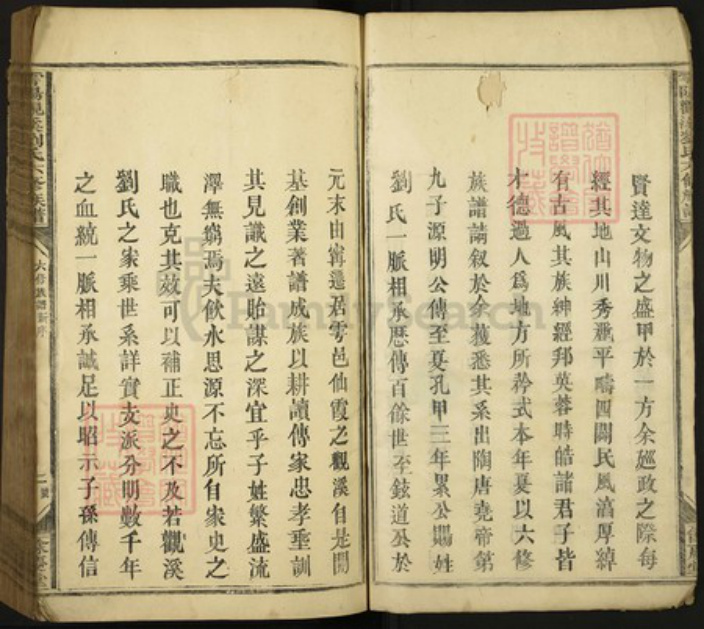 賢達文物之盛甲於一方余廵政之際每
經其地山川秀麗平疇四闢民風湻厚綽
有古風其族紳經邦英蓉時皓諸君子皆
才德過人爲地方所矜式本年夏以六修
族譜請叙於余獲悉其系出陶唐堯帝第
九子源明公傳至夏孔甲三年累公賜姓
劉氏一脈相承歷傳百餘世至鉉道公於
元末由寗遷居雩邑仙霞之觀溪自是開
基創業著譜成族以耕讀傳家忠孝垂訓
其見識之遠貽謀之深宜乎子姓繁盛流
澤無窮焉夫飲水思源不忘所自家史之
職也克其效可以補正史之不及若觀溪
劉氏之家乘世系詳實支派分明數千年
之血統一脈相承誠足以昭示子孫傳信
劉氏六修族譜
六修族譜新序
FamilySearch